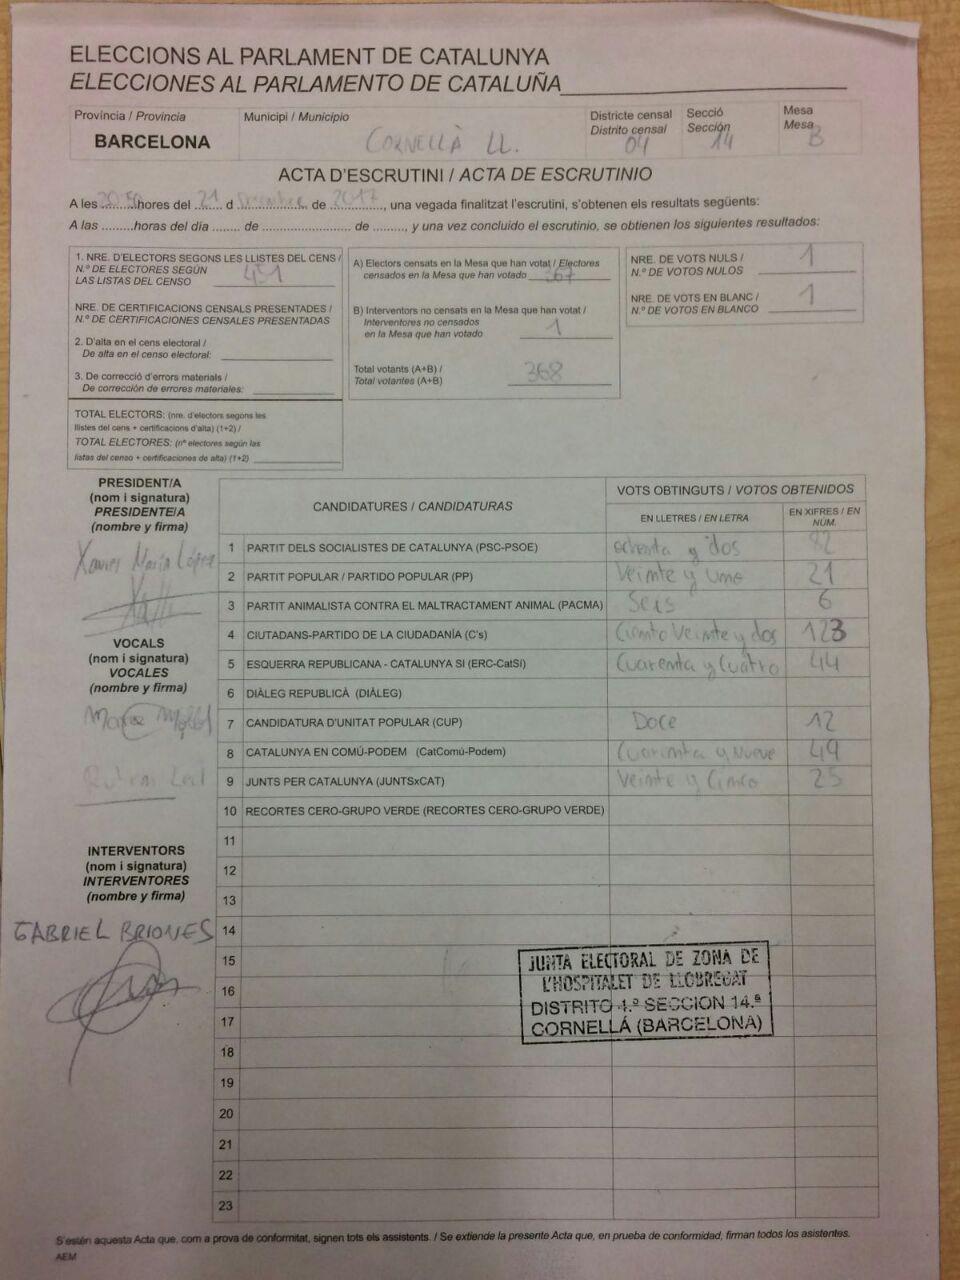 ELECCIONS AL PARLAMENT DE CATALUNYA
ELECCIONES AL PARLAMENTO DE CATALUÑA
Província / Provincia
BARCELONA
Municipi / Municipio
CORNELLÀ LL.
Districte censal
Distrito censal
04
Secció
Sección
14
Mesa
Mesa
B
ACTA D'ESCRUTINI / ACTA DE ESCRUTINIO
A les 20:50 hores del 21 d Desembre de 2017, una vegada finalitzat l'escrutini, s'obtenen els resultats següents:
A las .........horas del día ........ de .......................... de ........., y una vez concluido el escrutinio, se obtienen los siguientes resultados:
1. NRE. D'ELECTORS SEGONS LES LLISTES DEL CENS /
N.º DE ELECTORES SEGÚN
LAS LISTAS DEL CENSO 451
NRE. DE CERTIFICACIONS CENSALS PRESENTADES /
N.º DE CERTIFICACIONES CENSALES PRESENTADAS
2. D'alta en el cens electoral /
De alta en el censo electoral:
3. De correcció d'errors materials /
De corrección de errores materiales:
TOTAL ELECTORS: (nre. d'electors segons les
llistes del cens + certificacions d'alta) (1+2) /
TOTAL ELECTORES: (nº electores según las
listas del censo + certificaciones de alta) (1+2)
A) Electors censats en la Mesa que han votat / Electores
censados en la Mesa que han votado 367
B) Interventors no censats en la Mesa que han votat /
Interventores no censados
en la Mesa que han votado 1
Total votants (A+B) /
Total votantes (A+B) 368
NRE. DE VOTS NULS /
N.º DE VOTOS NULOS 1
NRE. DE VOTS EN BLANC /
N.º DE VOTOS EN BLANCO 1
PRESIDENT/A
(nom i signatura)
PRESIDENTE/A
(nombre y firma)
Xavier María López
VOCALS
(nom i signatura)
VOCALES
(nombre y firma)
INTERVENTORS
(nom i signatura)
INTERVENTORES
(nombre y firma)
GABRIEL BRIONES
CANDIDATURES / CANDIDATURAS
VOTS OBTINGUTS / VOTOS OBTENIDOS
EN LLETRES / EN LETRA
EN XIFRES / EN NÚM.
1 PARTIT DELS SOCIALISTES DE CATALUNYA (PSC-PSOE) ochenta y dos 82
2 PARTIT POPULAR / PARTIDO POPULAR (PP) Veinte y uno 21
3 PARTIT ANIMALISTA CONTRA EL MALTRACTAMENT ANIMAL (PACMA) Seis 6
4 CIUTADANS-PARTIDO DE LA CIUDADANÍA (C's) Ciento Veinte y dos 123
5 ESQUERRA REPUBLICANA - CATALUNYA SI (ERC-CatSI) Cuarenta y Cuatro 44
6 DIÀLEG REPUBLICÀ (DIÀLEG)
7 CANDIDATURA D'UNITAT POPULAR (CUP) Doce 12
8 CATALUNYA EN COMÚ-PODEM (CatComú-Podem) Cuarenta y Nueve 49
9 JUNTS PER CATALUNYA (JUNTSxCAT) Veinte y Cinco 25
10 RECORTES CERO-GRUPO VERDE (RECORTES CERO-GRUPO VERDE)
11
12
13
14
15
16
17
18
19
20
21
22
23
JUNTA ELECTORAL DE ZONA DE
L'HOSPITALET DE LLOBREGAT
DISTRITO 4.º SECCION 14.ª
CORNELLÁ (BARCELONA)
S'estén aquesta Acta que, com a prova de conformitat, signen tots els assistents. / Se extiende la presente Acta que, en prueba de conformidad, firman todos los asistentes.
AEM